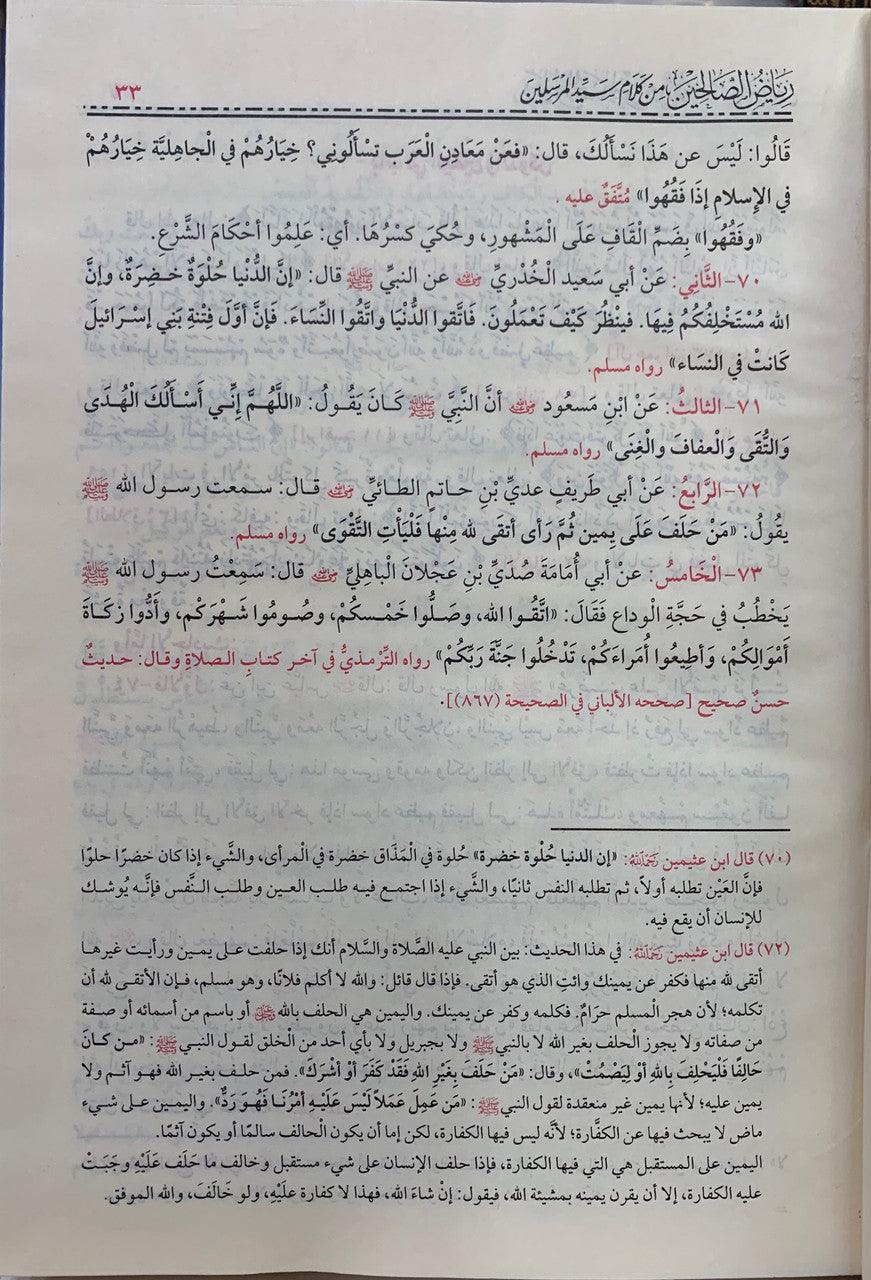 رياض الصالحين من كلام سيد المرسلين ٣٣
قَالُوا: لَيْسَ عن هَذَا نَسْأَلُكَ، قال: «فعَنْ مَعَادِنِ الْعَرَب تسْأَلُوني؟ خِيَارُهُمْ في الْجاهِليَّة خِيَارُهُمْ
في الإِسلامِ إذَا فَقُهُوا» مُتَّفَقٌ عليه.
«وفَقُهُوا» بِضَمِّ الْقَافِ عَلَى الْمَشْهورِ، وحُكيَ كسْرُهَا. أي: عَلِمُوا أحْكَامَ الشَّرْعِ.
٧٠-الثَّانِي: عَنْ أبي سَعيد الْخُدْريِّ رضي الله عنه عن النبيِّ ﷺ قال: «إنَّ الدُّنْيا حُلْوَةٌ خضِرَةٌ، وإنَّ
الله مُسْتَخْلِفُكُمْ فِيهَا. فينْظُرَ كَيْفَ تَعْمَلُونَ. فَاتَّقوا الدُّنْيَا واتَّقُوا النِّسَاءَ. فَإنَّ أوَّلَ فِتْنةِ بَنِي إسْرَائيلَ
كَانتْ في النسَاء» رواه مسلم.
٧١-الثالثُ: عَنْ ابْنِ مَسعُود رضي الله عنه أنَّ النَّبيَّ ﷺ كَانَ يَقُولُ: «اللَّهُمَّ إنِّي أَسْألُكَ الْهُدَى
وَالتُّقَى وَالْعفافَ والْغِنَى» رواه مسلم.
٧٢-الرَّابعُ: عَنْ أبي طَريفٍ عديِّ بْنِ حاتمٍ الطائيِّ رضي الله عنه قال: سمعت رسول الله ﷺ
يقُولُ: «مَنْ حَلَفَ عَلَى يمِين ثُمَّ رَأى أتقَى لله مِنْها فَلْيَأْتِ التَّقْوَى» رواه مسلم.
٧٣-الْخَامسُ: عنْ أبي أُمَامَةَ صُدَيِّ بْنِ عَجْلانَ الْباهِليِّ رضي الله عنه قال: سَمِعْتُ رسول الله ﷺ
يَخْطُبُ في حَجَّةِ الْوداع فَقَالَ: «اتَّقُوا الله، وصَلُّوا خَمْسكُمْ، وصُومُوا شَهْرَكمْ، وأَدُّوا زكَاةَ
أمْوَالِكُمْ، وَأطِيعُوا أُمَرَاءَكُمْ، تَدْخُلُوا جَنَّةَ رَبِّكُمْ» رواه التِّرْمذيُّ في آخر كتابِ الصلاةِ وقال: حديثٌ
حسنٌ صحيح [صححه الألباني في الصحيحة (٨٦٧)].
(٧٠) قال ابن عثيمين رحمه الله: «إن الدنيا حُلْوة خضرة» حُلوة في الْمَذَاق خضرة في الْمرأى، والشَّيء إذا كان خضرًا حلوًا
فإنَّ العَيْن تطلبه أولاً، ثم تطلبه النفس ثانيًا، والشَّيء إذا اجتمع فيه طلب العين وطلب النَّفس فإنَّه يُوشك
للإنسان أن يقع فيه.
(٧٢) قال ابن عثيمين رحمه الله: في هذا الحديث: بين النبي عليه الصَّلاة والسَّلام أنك إذا حلفت على يمين ورأيت غيرها
أتقى لله منها فكفر عن يمينك وائتِ الذي هو أتقى. فإذا قال قائل: والله لا أكلم فلانًا، وهو مسلم، فإن الأتقى لله أن
تكلمه؛ لأن هجر الْمسلم حرَامٌ. فكلمه وكفر عن يمينك. واليمين هي الحلف بالله ﷻ أو باسم من أسمائه أو صفة
من صفاته ولا يجوز الْحلف بغير الله لا بالنبي ﷺ ولا بجبريل ولا بأي أحد من الْخلق لقول النبي ﷺ: «من كَانَ
حَالِفًا فَلْيَحْلِف بِاللهِ أوْ لِيَصْمُتْ»، وقال: «مَنْ حَلَفَ بِغَيْرِ اللهِ فَقَدْ كَفَرَ أوْ أشْرَكَ». فمن حلف بغير الله فهو آثم ولا
يمين عليه؛ لأنها يمين غير منعقدة لقول النبي ﷺ: «مَن عَمِلَ عَمَلاً لَيْسَ عَلَيْهِ أمْرُنَا فَهُوَ رَدٌّ». واليمين على شيء
ماض لا يبحث فيها عن الكفَّارة؛ لأنَّه ليس فيها الكفارة، لكن إما أن يكون الْحالف سالمًا أو يكون آثمًا.
اليمين على المستقبل هي التي فيها الكفارة، فإذا حلف الإنسان على شيء مستقبل وخالف ما حَلَف عَلَيْهِ وجَبَتْ
عليه الكفارة، إلا أن يقرن يمينه بمشيئة الله، فيقول: إنْ شاءَ الله، فهذا لا كفارة علَيْهِ، ولو خَالَفَ، والله الموفق.